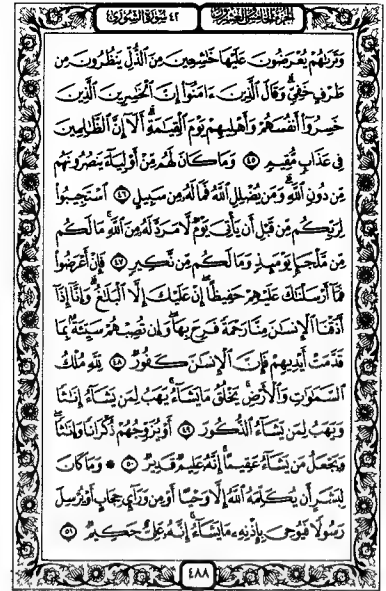 ٤٢ سورة الشورى الجزء الخامس والعشرون
وَتَرَىٰهُمْ يُعْرَضُونَ عَلَيْهَا خَٰشِعِينَ مِنَ ٱلذُّلِّ يَنظُرُونَ مِن
طَرْفٍ خَفِيٍّ ۗ وَقَالَ ٱلَّذِينَ ءَامَنُوٓا۟ إِنَّ ٱلْخَٰسِرِينَ ٱلَّذِينَ
خَسِرُوٓا۟ أَنفُسَهُمْ وَأَهْلِيهِمْ يَوْمَ ٱلْقِيَٰمَةِ ۗ أَلَآ إِنَّ ٱلظَّٰلِمِينَ
فِى عَذَابٍ مُّقِيمٍ ٤٥ وَمَا كَانَ لَهُم مِّنْ أَوْلِيَآءَ يَنصُرُونَهُم
مِّن دُونِ ٱللَّهِ ۗ وَمَن يُضْلِلِ ٱللَّهُ فَمَا لَهُۥ مِن سَبِيلٍ ٤٦ ٱسْتَجِيبُوا۟
لِرَبِّكُم مِّن قَبْلِ أَن يَأْتِىَ يَوْمٌ لَّا مَرَدَّ لَهُۥ مِنَ ٱللَّهِ ۚ مَا لَكُم
مِّن مَّلْجَإٍ يَوْمَئِذٍ وَمَا لَكُم مِّن نَّكِيرٍ ٤٧ فَإِنْ أَعْرَضُوا۟
فَمَآ أَرْسَلْنَٰكَ عَلَيْهِمْ حَفِيظًا ۖ إِنْ عَلَيْكَ إِلَّا ٱلْبَلَٰغُ ۗ وَإِنَّآ إِذَآ
أَذَقْنَا ٱلْإِنسَٰنَ مِنَّا رَحْمَةً فَرِحَ بِهَا ۖ وَإِن تُصِبْهُمْ سَيِّئَةٌۢ بِمَا
قَدَّمَتْ أَيْدِيهِمْ فَإِنَّ ٱلْإِنسَٰنَ كَفُورٌ ٤٨ لِّلَّهِ مُلْكُ
ٱلسَّمَٰوَٰتِ وَٱلْأَرْضِ ۚ يَخْلُقُ مَا يَشَآءُ ۚ يَهَبُ لِمَن يَشَآءُ إِنَٰثًا
وَيَهَبُ لِمَن يَشَآءُ ٱلذُّكُورَ ٤٩ أَوْ يُزَوِّجُهُمْ ذُكْرَانًا وَإِنَٰثًا ۖ
وَيَجْعَلُ مَن يَشَآءُ عَقِيمًا ۚ إِنَّهُۥ عَلِيمٌ قَدِيرٌ ٥٠ ۞ وَمَا كَانَ
لِبَشَرٍ أَن يُكَلِّمَهُ ٱللَّهُ إِلَّا وَحْيًا أَوْ مِن وَرَآئِ حِجَابٍ أَوْ يُرْسِلَ
رَسُولًا فَيُوحِىَ بِإِذْنِهِۦ مَا يَشَآءُ ۚ إِنَّهُۥ عَلِىٌّ حَكِيمٌ ٥١
٤٨٨